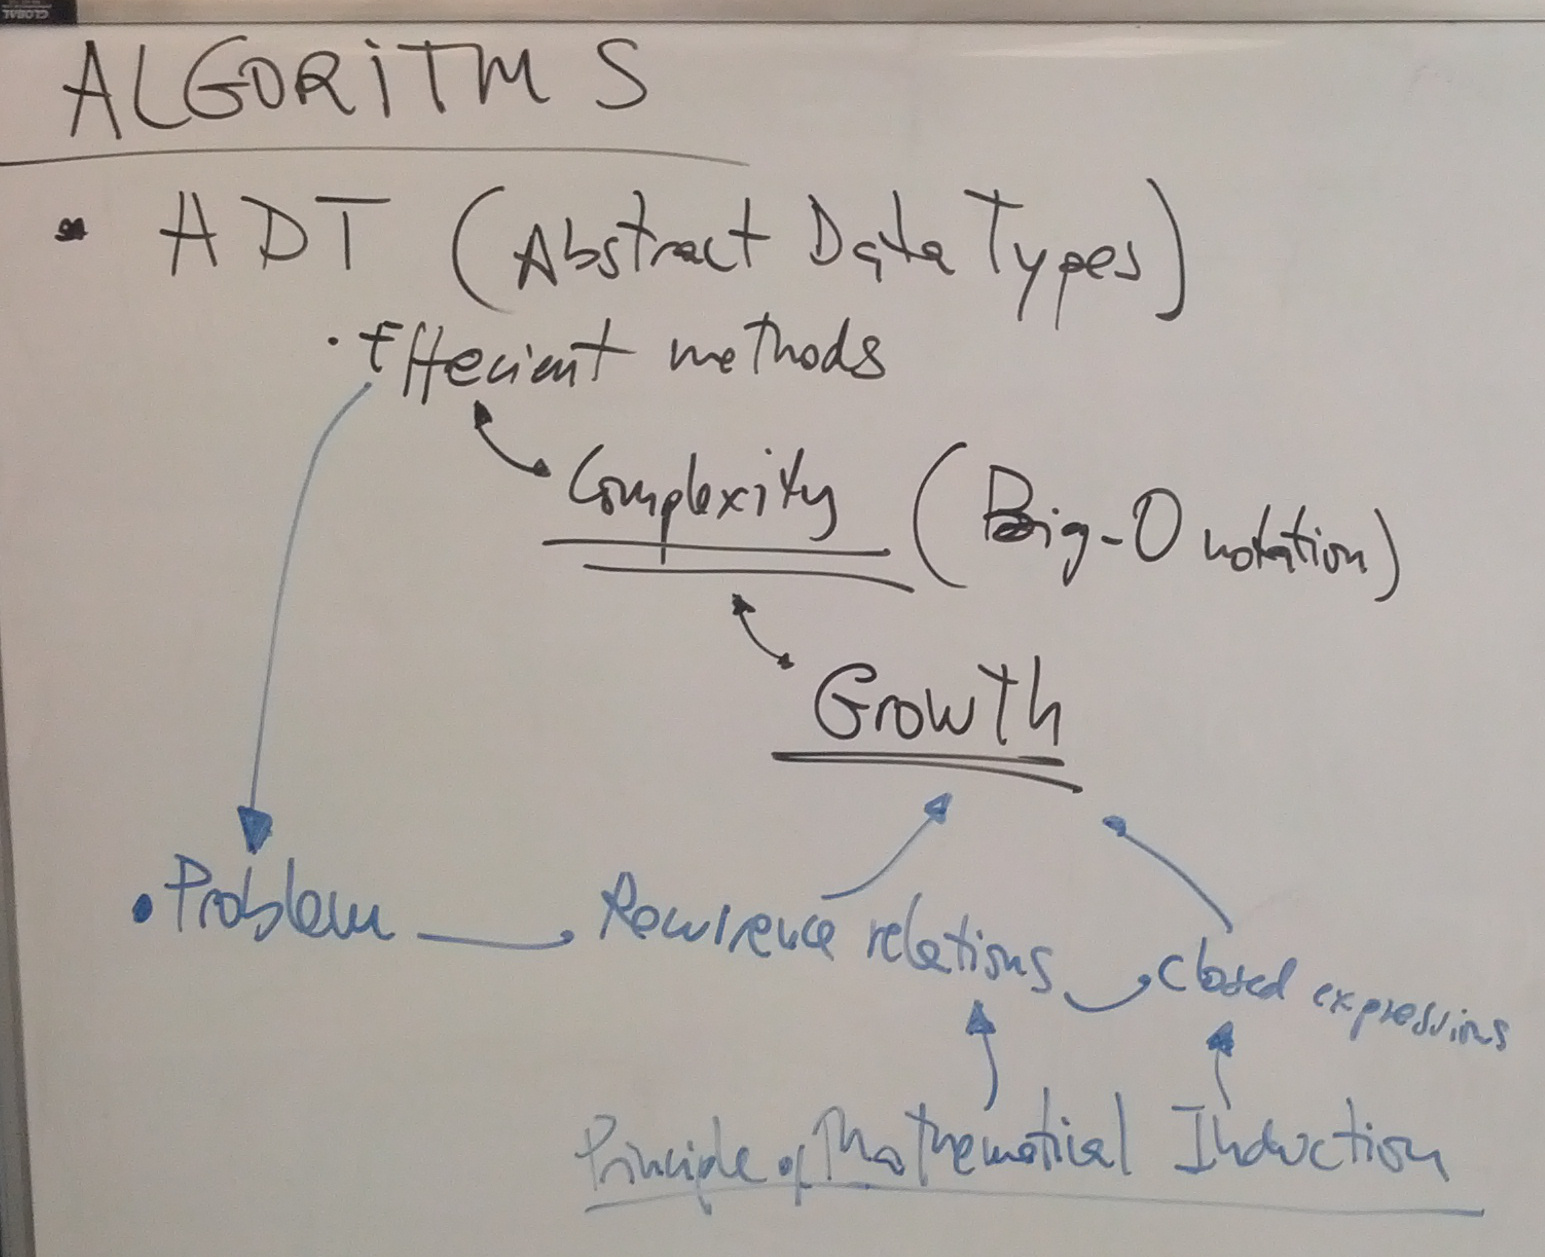 GLOBAL
ALGORITMS
ADT (Abstract Data Types)
· Effecient methods
Complexity (Big-O notation)
Growth
• Problem Recurrence relations closed expressions
Principle of Mathematical Induction